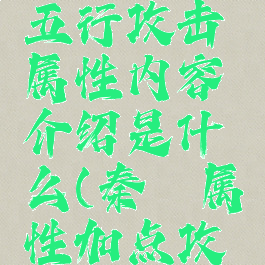 五行攻击
属性内容
介绍是什
么(秦 属
性加点攻